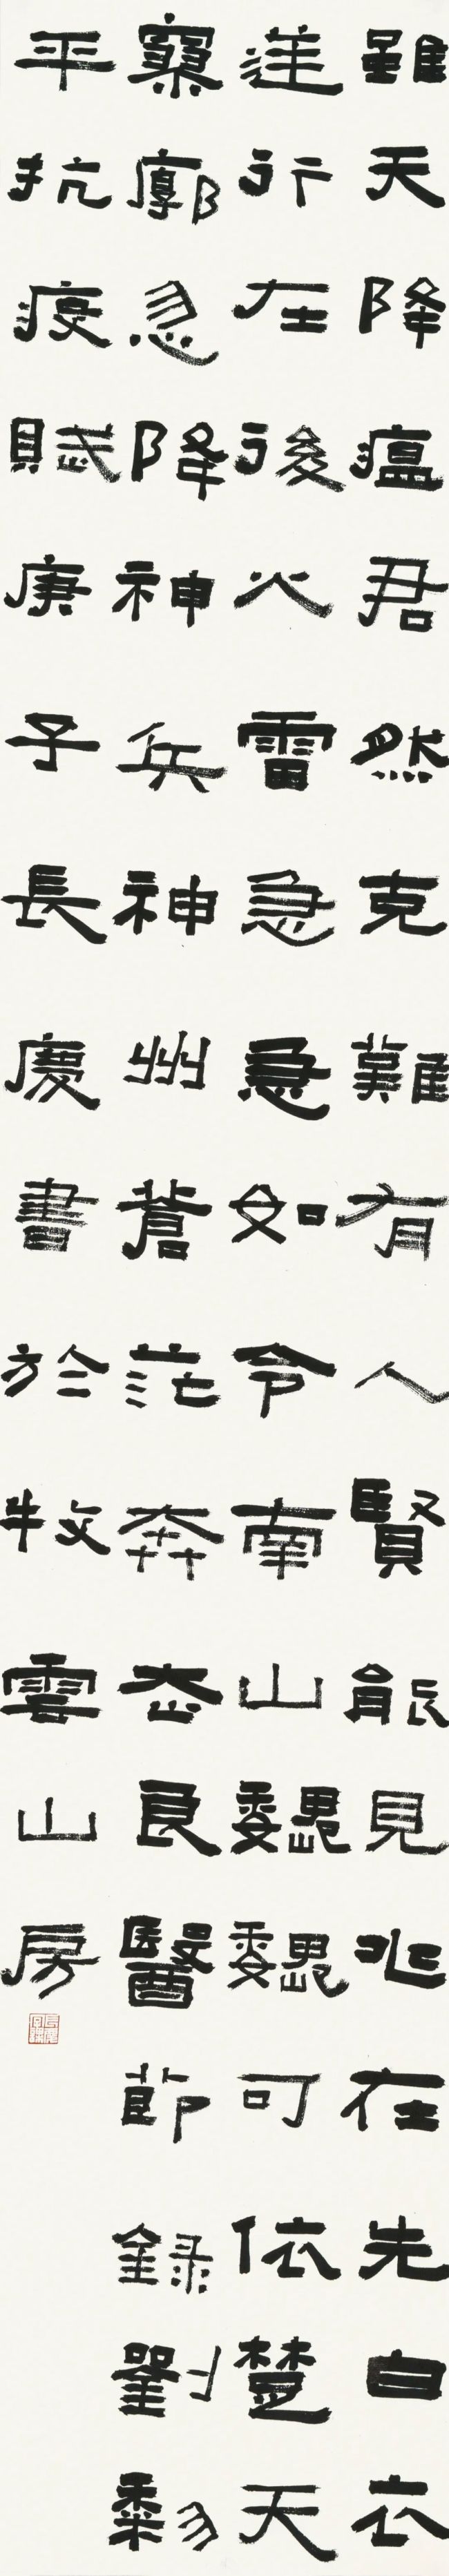 雖天降瘟君然克難有人賢能見兆在先白衣
逆行在後火雷急急如令南山巍巍可依楚天
寥廓忽降神兵神州蒼茫奔走良醫節錄劉黎
平抗疫賦庚子長慶書於牧雲山房